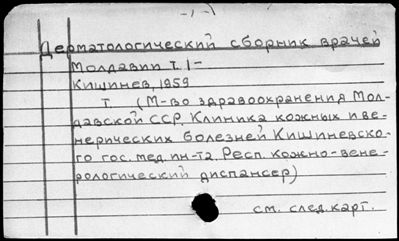 - 1 -
Дерматологический сборник врачей
Молдавии т. 1-
Кишинев, 1959
Т. (М-во здравоохранения Мол-
давской ССР. Клиника кожных и ве-
нерических болезней Кишиневско-
го гос. мед. ин-та. Респ. кожно-вене-
рологический диспансер)
см. след. карт.